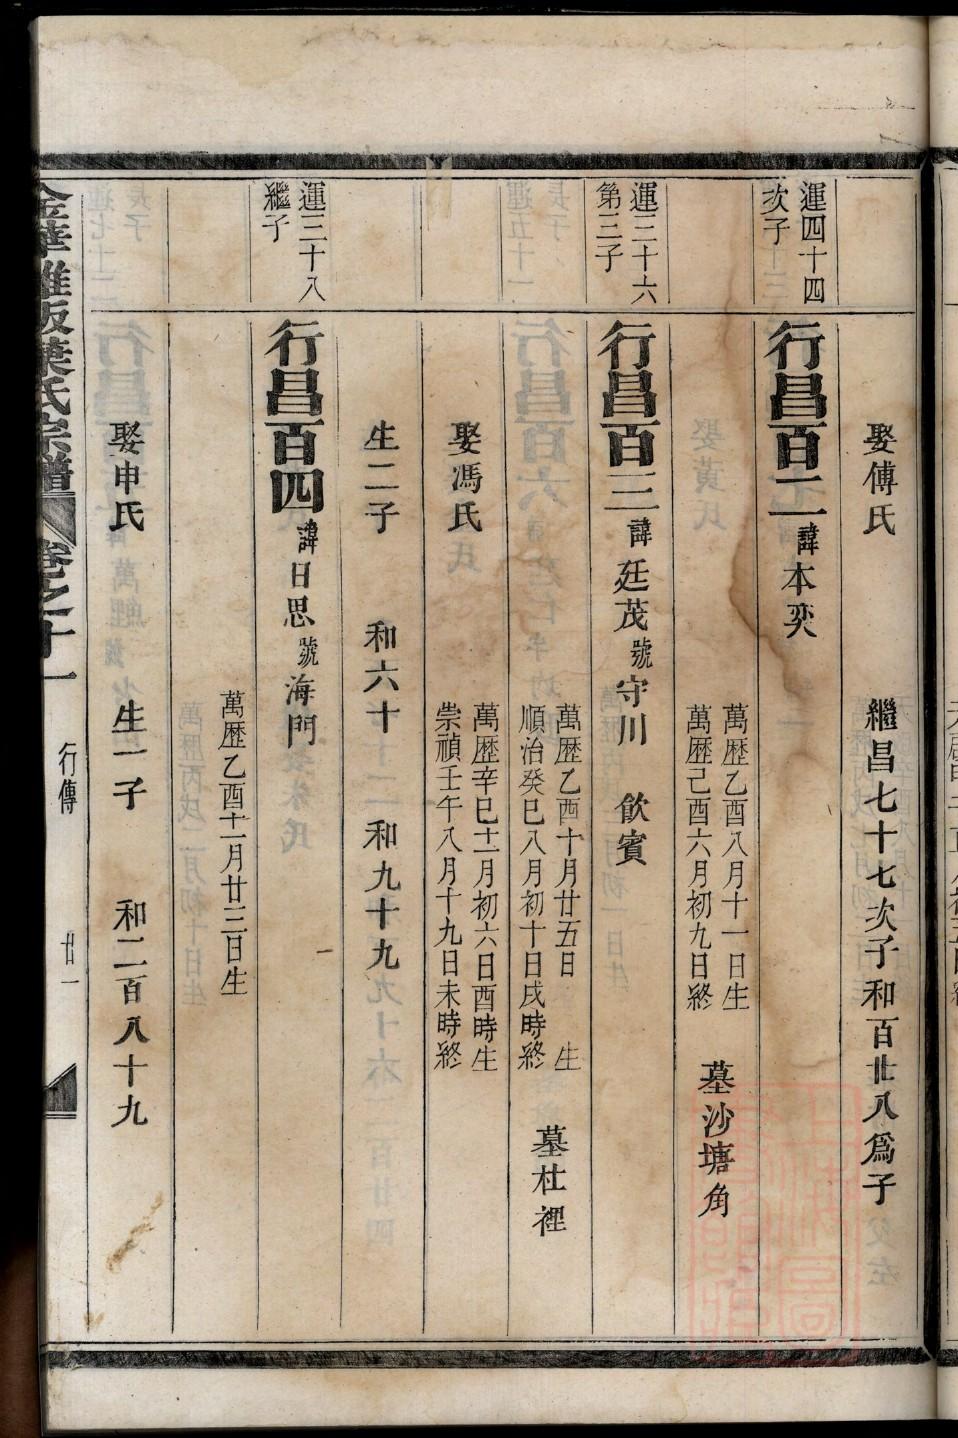 娶傅氏
繼昌七十七次子和百廿八爲子
運四十四
次子
行昌百二
諱本奕
萬歷乙酉八月十一日生
萬歷己酉六月初九日終
墓沙塘角
運三十六
第三子
行昌百三
諱廷茂號守川
飲賓
萬歷乙酉十月廿五日生
順治癸巳八月初十日戌時終
墓杜裡
娶馮氏
萬歷辛巳十一月初六日酉時生
崇禎壬午八月十九日未時終
生二子
和六十
和九十九
運三十八
繼子
行昌百四
諱日思號海門
萬歷乙酉十一月廿三日生
娶申氏
生一子
和二百八十九
金華雅畈葉氏宗譜
卷之十一
行傳
廿一